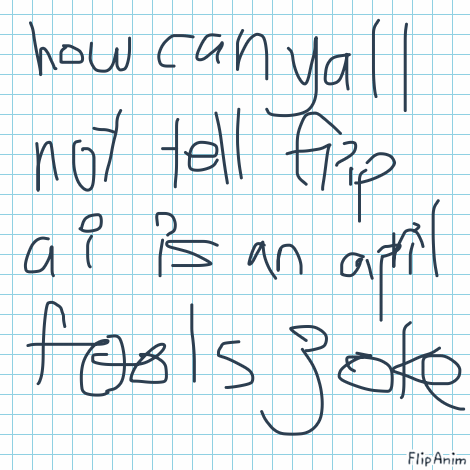 how can yall
not tell flip
ai is an april
fools joke
FlipAnim